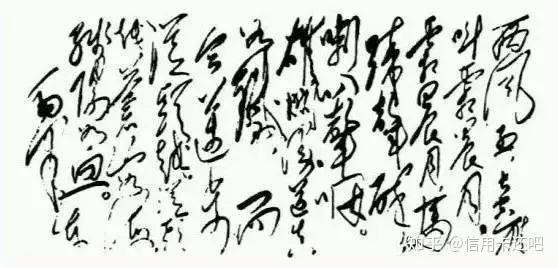 西风烈长空雁
叫霜晨月。
霜晨月马
蹄声碎
喇叭声咽。
雄关漫道真
如铁而
今迈步
从头越从头
越苍山如海
残阳如血。
知乎 @信用卡还吧